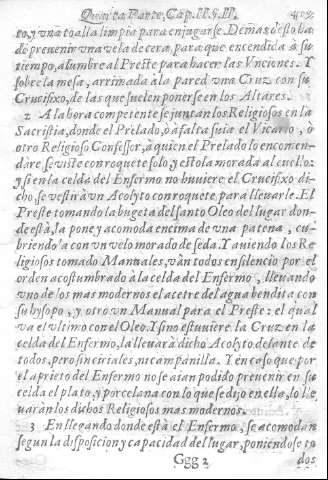 Quinta Parte, Cap. II. §. II.
to, y vna toalla limpia para enjugarse. Demàs desto ha
de prevenir vna vela de cera, para que encendida à su
tiempo, alumbre al Preste para hacer las Vnciones. Y
sobre la mesa, arrimada à la pared vna Cruz con su
Crucifixo, de las que suelen ponerse en los Altares.
2 A la hora competente se juntan los Religiosos en la
Sacristia, donde el Prelado, ò à falta suia el Vicario, ò
otro Religioso Confessor, à quien el Prelado lo encomen-
dare, se viste con roquete solo, y estola morada al cuello:
y si en la celda del Enfermo no huviere el Crucifixo di-
cho, se vestirà vn Acolyto con roquete, para llevarle. El
Preste tomando la bugeta del santo Oleo del lugar don-
de està, la pone y acomoda encima de vna patena, cu-
briendola con vn velo morado de seda. Y aviendo los Re-
ligiosos tomado Manuales, vàn todos en silencio por el
orden acostumbrado à la celda del Enfermo, llevando
vno de los mas modernos el acetre del agua bendita con
su hysopo, y otro vn Manual para el Preste: el qual
va el vltimo con el Oleo. Y si no estuviere la Cruz en la
celda del Enfermo, la llevarà dicho Acolyto delante de
todos, pero sin ciriales, ni campanilla. Y en caso que por
el aprieto del Enfermo no se aian podido prevenir en su
celda el plato, y porcelana con lo que se dijo en ella, lo lle-
varàn los dichos Religiosos mas modernos.
3 En llegando donde està el Enfermo, se acomodan
segun la disposicion y capacidad del lugar, poniendose to
Ggg 2 dos